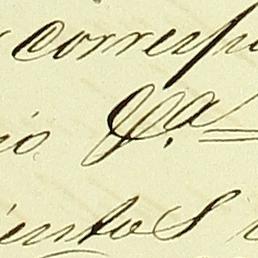 corresp
io V.a
ientos